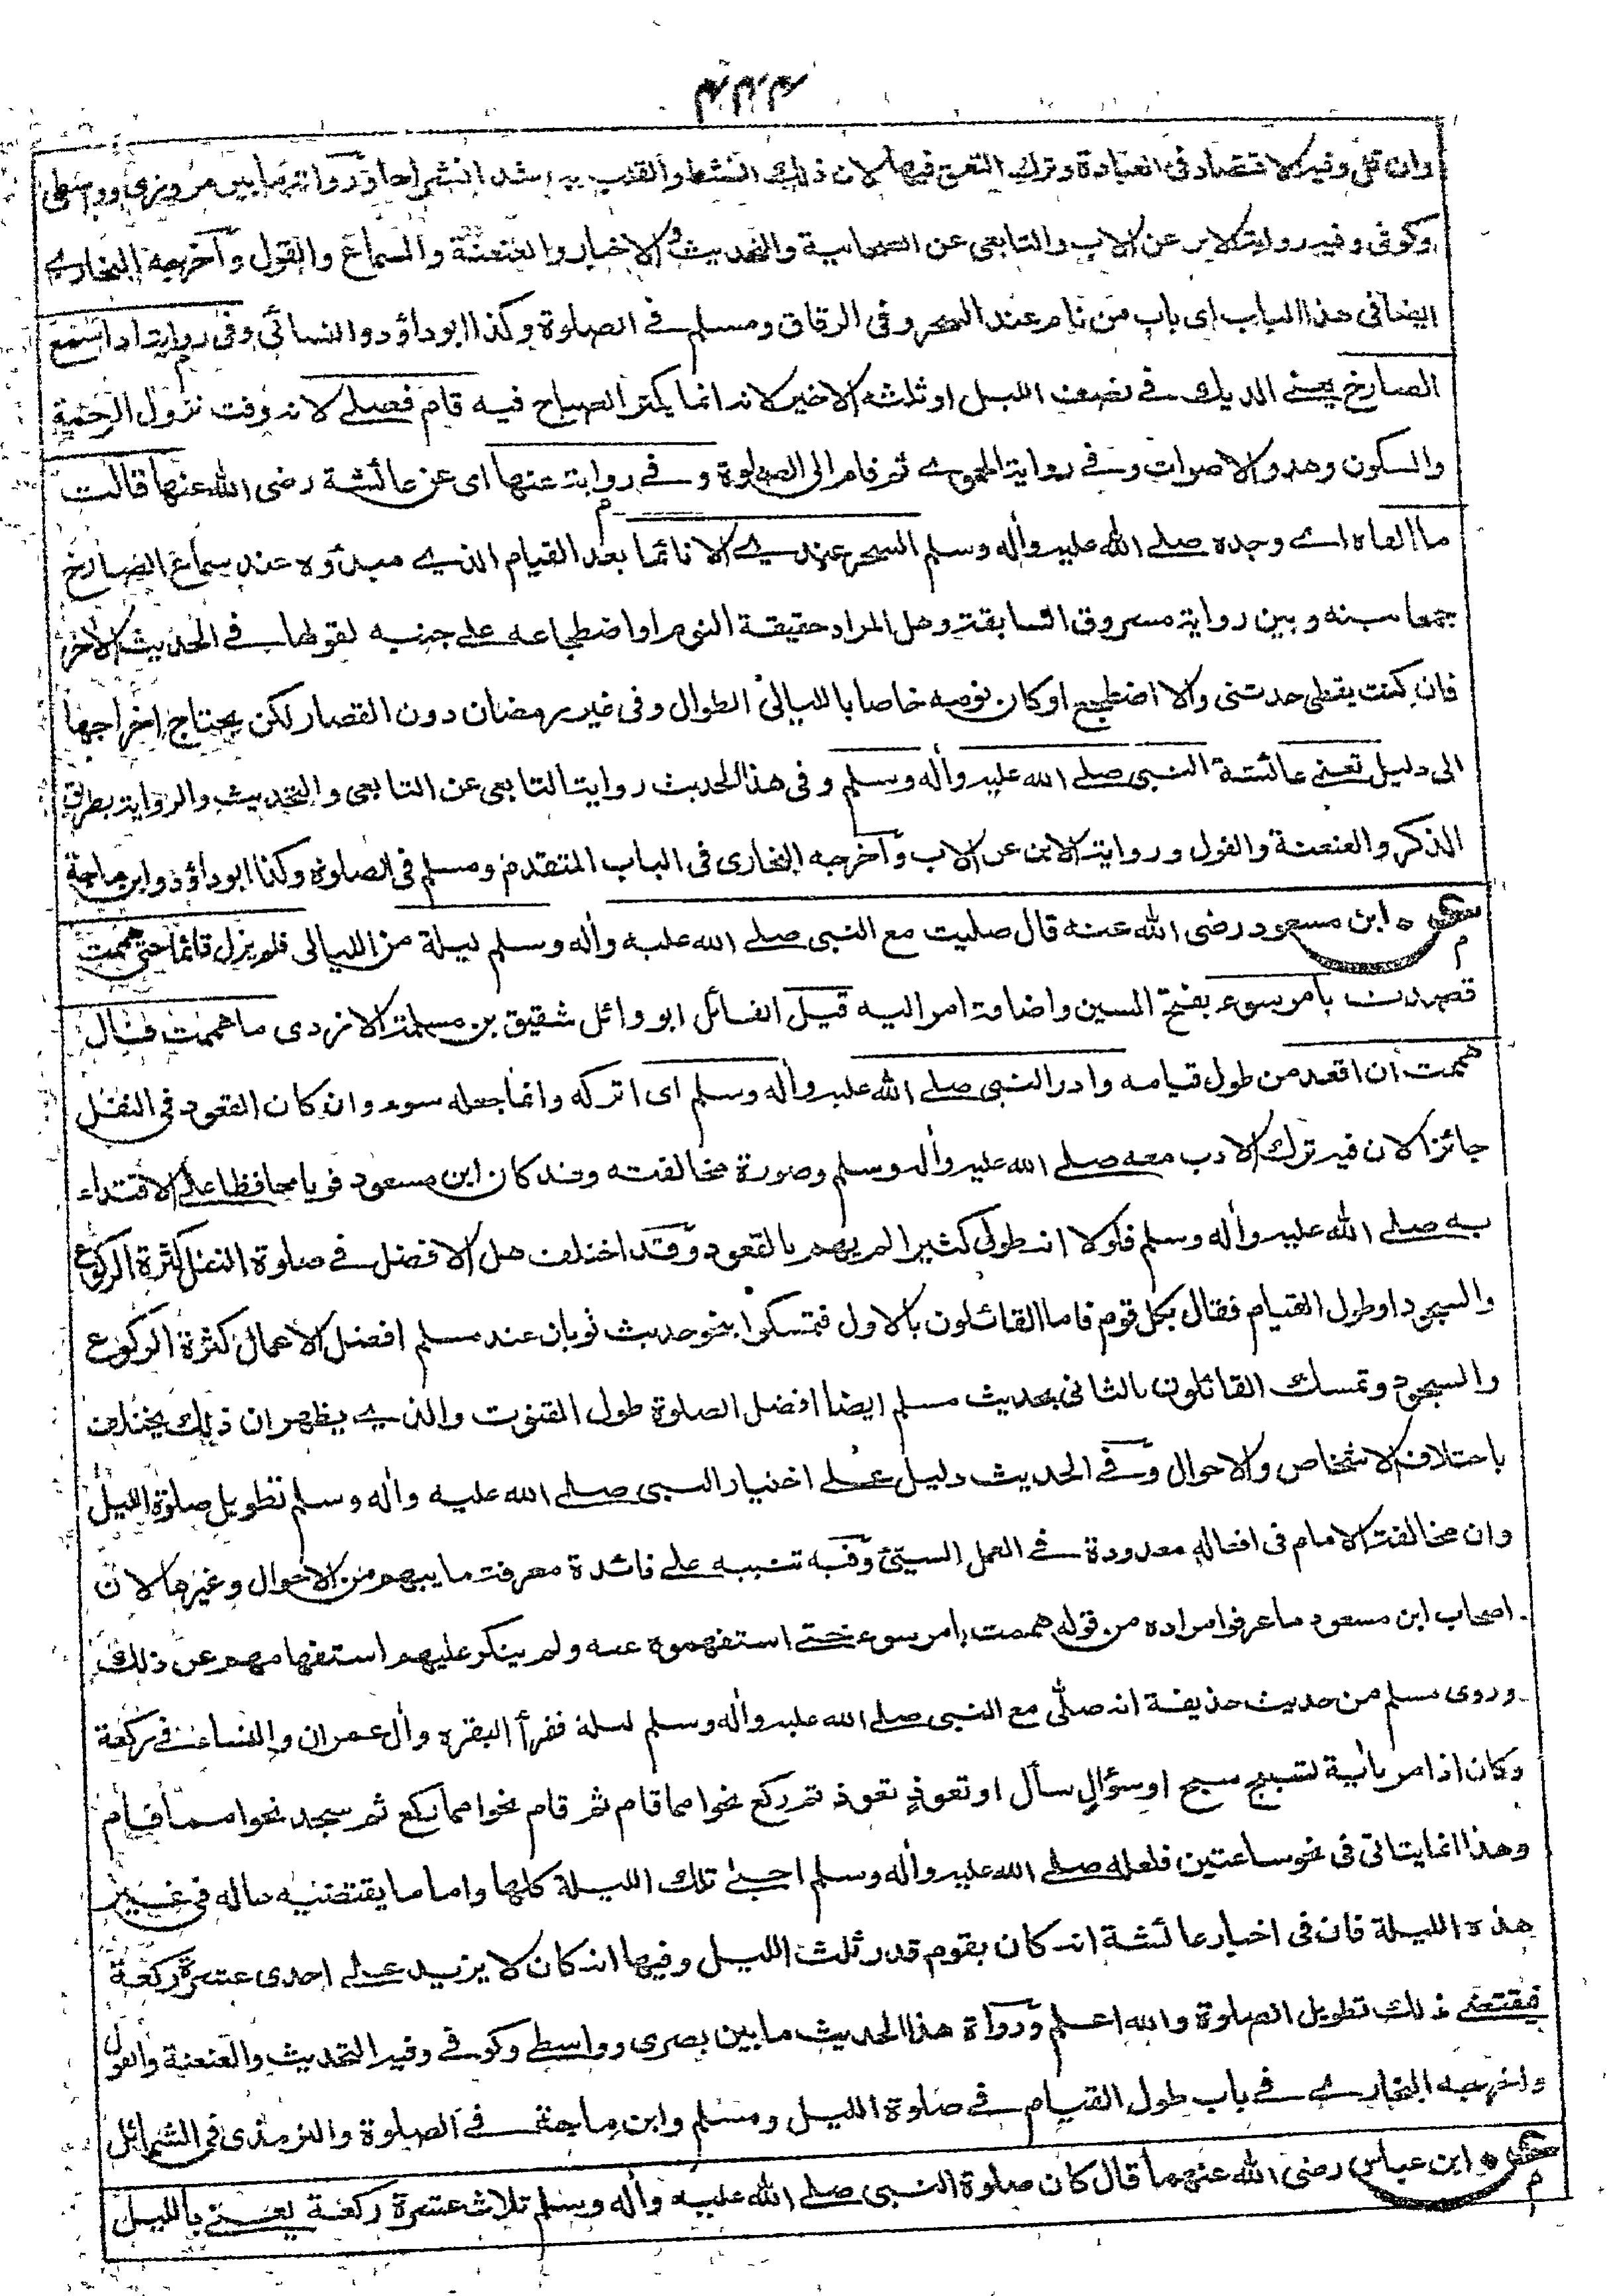 ٤٤٤
وان قل وفيه الاقتصاد فى العبادة وترك التعمق فيها لان ذلك انشط والقلب به اشد انشراحا ورواته ما بين مروزى وواسطى
وكوفى وفيه رواية الابن عن الاب والتابعى عن الصحابية والتحديث والاخبار والعنعنة والسماع والقول وأخرجه البخارے
ايضا فى هذا الباب اى باب من نام عند السحر وفى الرقاق ومسلم فى الصلوة وكذا ابو داؤد والنسائى وفى رواية اذا سمع
الصارخ يعنے الديك فے نصف الليل او ثلثه الاخير لانه انما يكثر الصياح فيه قام فصلے لانه وقت نزول الرحمة
والسكون وهدو الاصوات وفے رواية الحموے ثم قام الى الصلوة وفے رواية عنها اى عن عائشة رضى الله عنها قالت
ما الفاه اے وجده صلے الله عليه وأله وسلم السحر عندے الا نائما بعد القيام الذے مبدؤه عند سماع الصارخ
جمعا بينه وبين رواية مسروق السابقة وهل المراد حقيقة النوم او اضطجاعه علے جنبه لقولها فے الحديث الأخر
فان كنت يقظى حدثنى والا اضطجع او كان نومه خاصا بالليالى الطوال وفى غير رمضان دون القصار لكن يحتاج اخراجها
الى دليل تعنے عائشة النبى صلے الله عليه وأله وسلم وفى هذا الحديث رواية التابعى عن التابعى والتحديث والرواية بطريق
الذكر والعنعنة والقول ورواية الابن عن الاب وأخرجه البخارى فى الباب المتقدم ومسلم فى الصلوة وكذا ابو داؤد وابن ماجة
عن ابن مسعود رضى الله عنه قال صليت مع النبى صلے الله عليه وأله وسلم ليلة من الليالى فلم يزل قائما حتى هممت
قصدت بامر سوء بفتح السين واضافة امر اليه قيل القائل ابو وائل شقيق بن سلمة الازدى ما هممت قال
هممت أن اقعد من طول قيامه واذر النبى صلے الله عليه وأله وسلم اى اتركه وانما جعله سوء وان كان القعود فى النفل
جائزا لان فيه ترك الادب معه صلے الله عليه وأله وسلم وصورة مخالفته وقد كان ابن مسعود قويا محافظا علے الاقتداء
به صلے الله عليه وأله وسلم فلولا انه طول كثيرا لم يهم بالقعود وقد اختلف هل الافضل فے صلوة النفل كثرة الركوع
والسجود او طول القيام فقال بكل قوم فاما القائلون بالاول فتمسكوا بنحو حديث ثوبان عند مسلم افضل الاعمال كثرة الركوع
والسجود وتمسك القائلون بالثانى بحديث مسلم ايضا افضل الصلوة طول القنوت والذے يظهر ان ذلك يختلف
باختلاف الاشخاص والاحوال وفے الحديث دليل علے اختيار النبى صلے الله عليه وأله وسلم تطويل صلوة الليل
وان مخالفة الامام فى افعاله معدودة فے العمل السيئ وفيه تنبيه علے فائدة معرفة ما يبهم من الاحوال وغيرها لان
اصحاب ابن مسعود ما عرفوا مراده من قوله هممت بامر سوء حتے استفهموه عنه ولم ينكر عليهم استفهامهم عن ذلك
وروى مسلم من حديث حذيفة انه صلّى مع النبى صلے الله عليه وأله وسلم ليلة فقرأ البقرة وأل عمران والنساء فے ركعة
وكان اذا مر بأية تسبيح سبح او سؤال سأل او تعوذ تعوذ ثم ركع نحوا مما قام ثم قام نحوا مما ركع ثم سجد نحوا مما قام
وهذا انما يتاتى فى نحو ساعتين فلعله صلے الله عليه وأله وسلم احيے تلك الليلة كلها واما ما يقتضيه حاله فى غير
هذه الليلة فان فى اخبار عائشة انه كان يقوم قدر ثلث الليل وفيها انه كان لا يزيد علے احدى عشرة ركعة
فيقتضے ذلك تطويل الصلوة والله اعلم ورواة هذا الحديث ما بين بصرى وواسطے وكوفے وفيه التحديث والعنعنة والقول
واخرجه البخارے فے باب طول القيام فے صلوة الليل ومسلم وابن ماجة فے الصلوة والترمذى فى الشمائل
عن ابن عباس رضى الله عنهما قال كان صلوة النبى صلے الله عليه وأله وسلم ثلاث عشرة ركعة يعنے بالليل